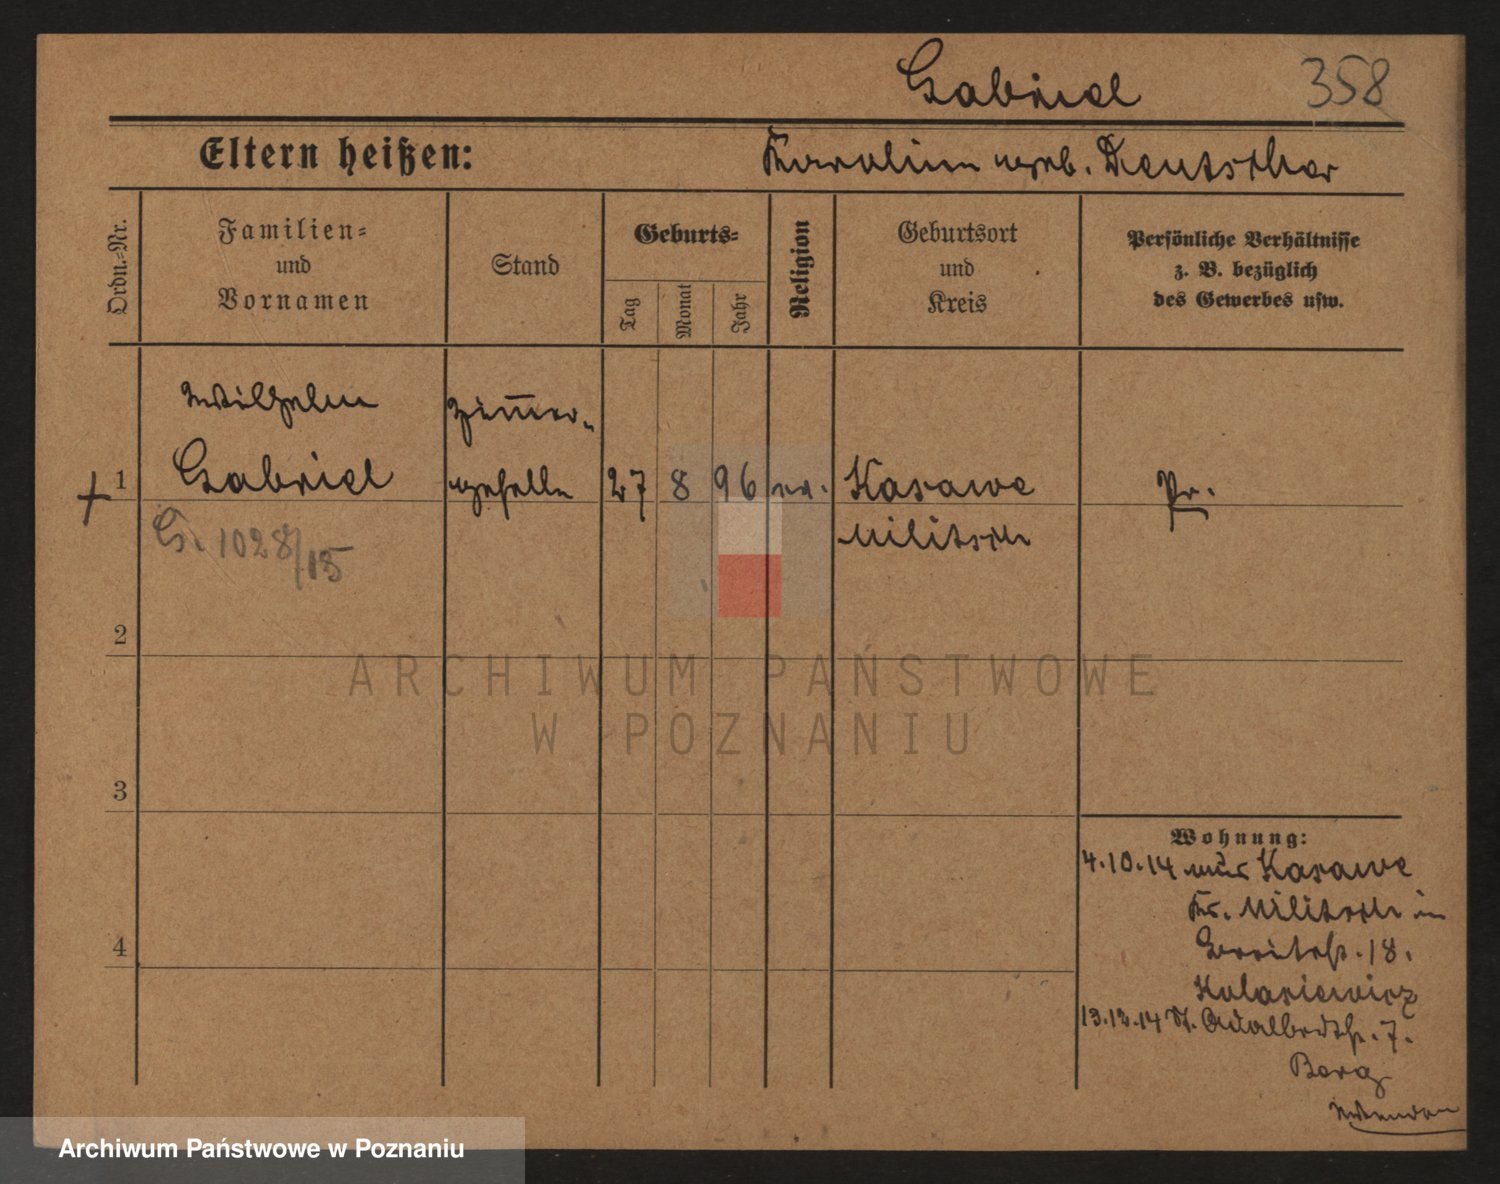 Gabriel 358
Eltern heißen: Karoline geb. Deutscher
Ordn.=Nr.
Familien=
und
Vornamen
Stand
Geburts=
Tag
Monat
Jahr
Religion
Geburtsort
und
Kreis
Persönliche Verhältnisse
z. B. bezüglich
des Gewerbes usw.
Wilhelm Zimmer-
1 Gabriel geselle 27 8 96 ev. Kasawe Pr.
Militsch
G. 1028/15
2
3
4
Wohnung:
4.10.14 aus Kasawe
Kr. Militsch in
Breitestr. 18.
13.12.14 St. Adalbertstr. 7.
Berg
ARCHIWUM PAŃSTWOWE
W POZNANIU
Archiwum Państwowe w Poznaniu